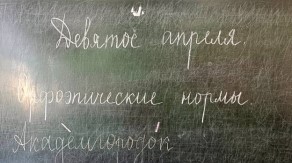 Девятое апреля.
Орфоэпические нормы.
Академгородок